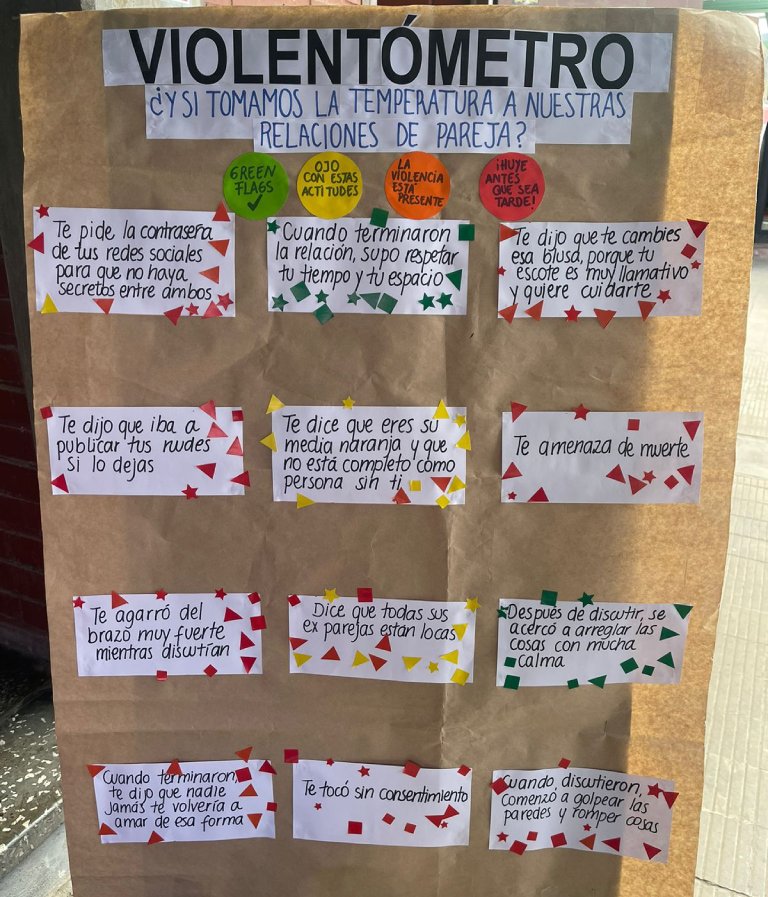 VIOLENTÓMETRO
¿Y SI TOMAMOS LA TEMPERATURA A NUESTRAS
RELACIONES DE PAREJA?
GREEN
FLAGS
OJO
CON ESTAS
ACTITUDES
LA
VIOLENCIA
ESTÁ
PRESENTE
¡HUYE
ANTES
QUE SEA
TARDE!
Te pide la contraseña
de tus redes sociales
para que no haya
secretos entre ambos
Cuando terminaron
la relación, supo respetar
tu tiempo y tu espacio
Te dijo que te cambies
esa blusa, porque tu
escote es muy llamativo
y quiere cuidarte
Te dijo que iba a
publicar tus nudes
si lo dejas
Te dice que eres su
media naranja y que
no está completo como
persona sin ti
Te amenaza de muerte
Te agarró del
brazo muy fuerte
mientras discutían
Dice que todas sus
ex parejas están locas
Después de discutir, se
acercó a arreglar las
cosas con mucha
calma
Cuando terminaron,
te dijo que nadie
jamás te volvería a
amar de esa forma
Te tocó sin consentimiento
Cuando discutieron,
comenzó a golpear las
paredes y romper cosas